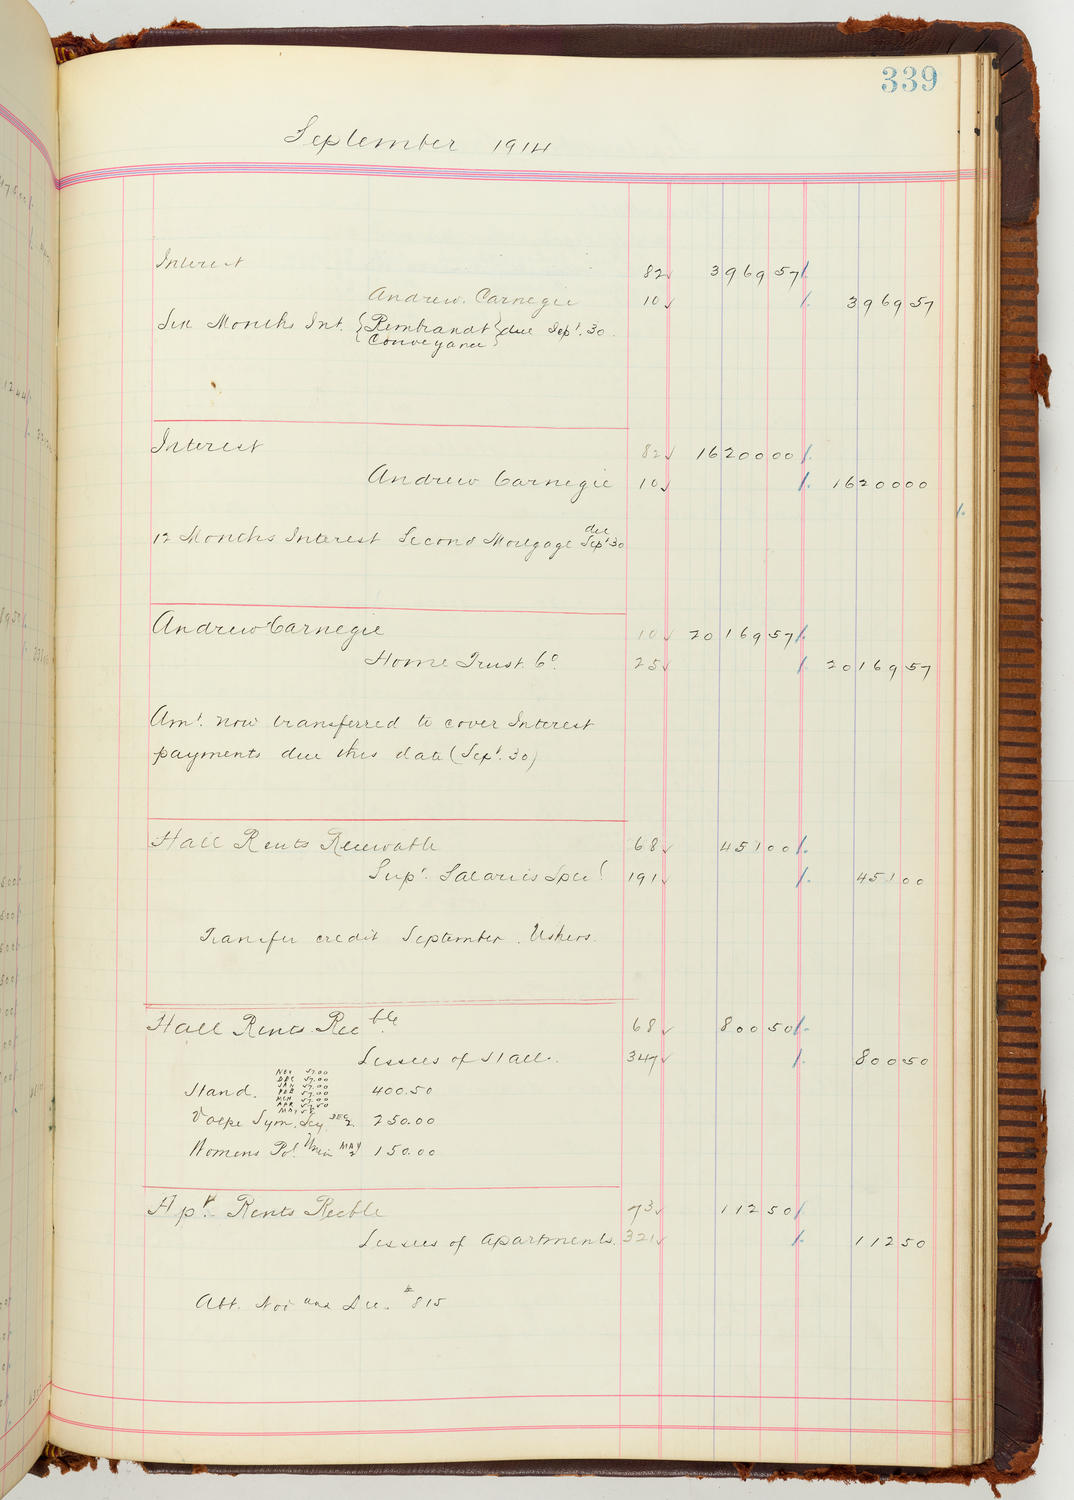 339
September 1914
Interest 82 ✓ 3969 57
Andrew Carnegie 10 ✓ 3969 57
Six Months Int. { Rembrandt } due Sept. 30.
Conveyance
Interest 82 ✓ 16200 00
Andrew Carnegie 10 ✓ 16200 00
due
12 Months Interest Second Mortgage Sept 30
Andrew Carnegie 10 ✓ 20169 57
Home Trust Co. 25 ✓ 20169 57
Amt. now transferred to cover Interest
payments due this date (Sept. 30)
Hall Rents Receivable 68 ✓ 451 00
Supt. Salaries Spec'l 191 ✓ 451 00
Transfer credit September. Ushers.
Hall Rents Rec ble 68 ✓ 800 50
Lessees of Hall. 347 ✓ 800 50
NOV 57.00
DEC 57.00
JAN 57.00
Hand. FEB 57.00 400.50
MCH 57.00
APR 57.50
MAY 58
Volpe Sym. Socy. DEC 2. 250.00
Womens Pol. Union MAY 2 150.00
Apt. Rents Recble 73 ✓ 112 50
Lessees of Apartments. 321 ✓ 112 50
Abt. Nov and Dec. # 815